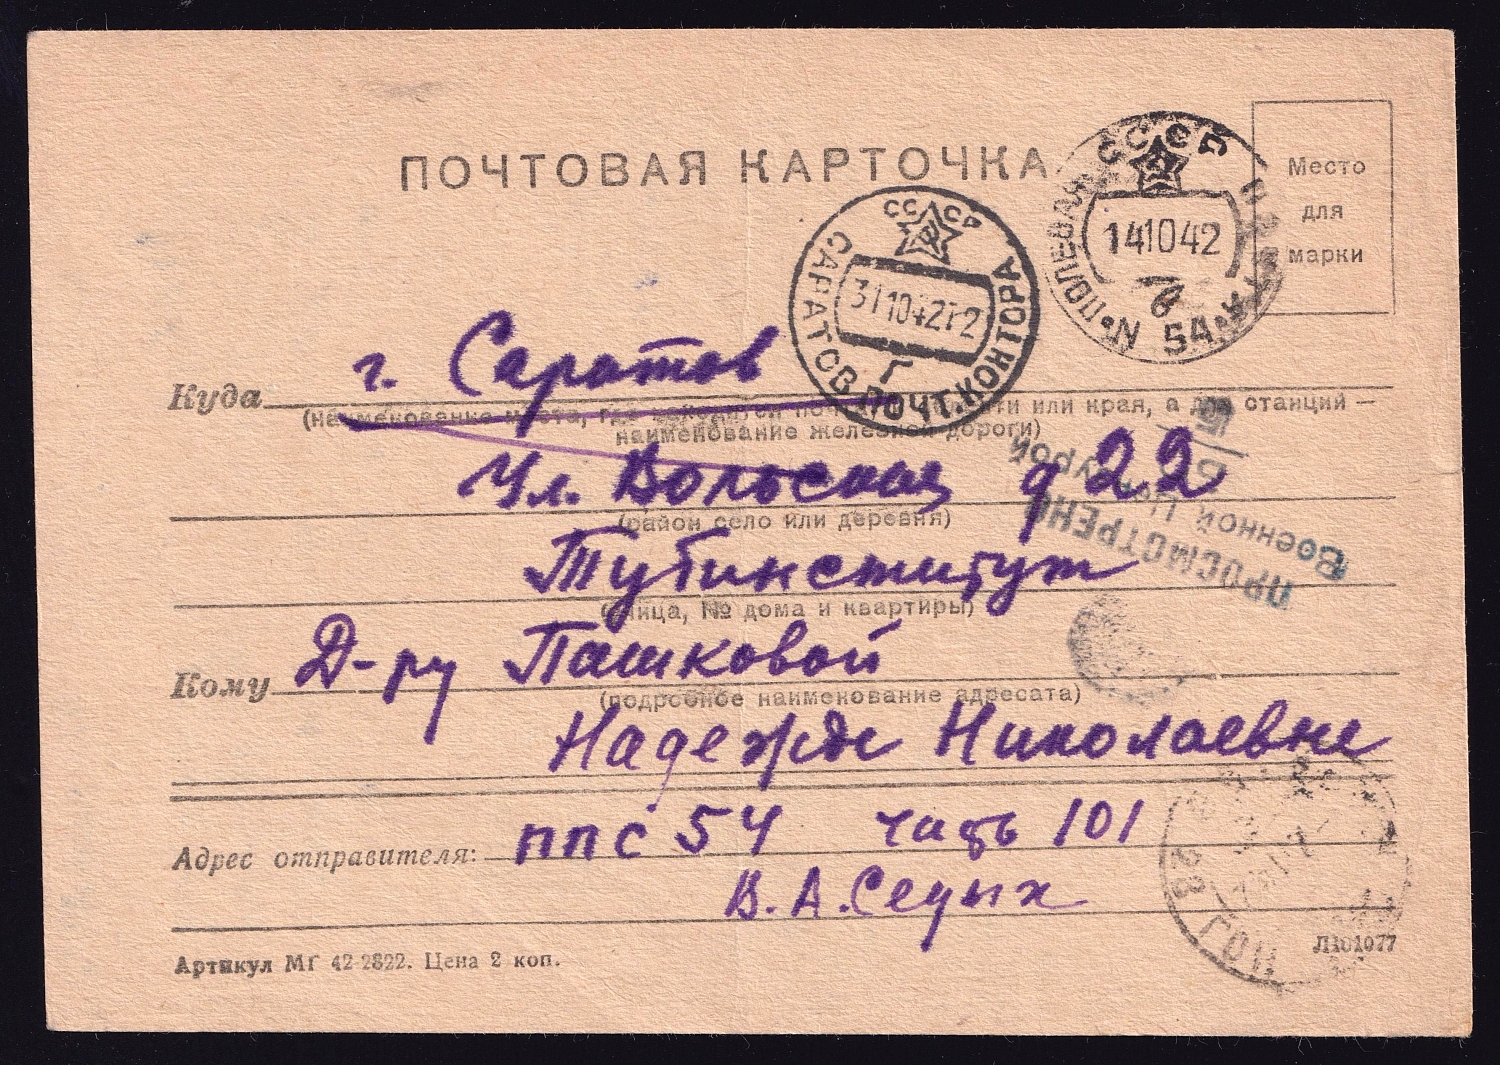 ПОЧТОВАЯ КАРТОЧКА
Место
для
марки
СССР
ПОЛЕВАЯ
141042
N 54
СССР
САРАТОВ ПОЧТ.КОНТОРА
311042 12
Г
Куда г. Саратов
(наименование места, где находится почта, области или края, а для станций —
наименование железной дороги)
Ул. Вольская д 22
(район село или деревня)
Тубинститут
(улица, № дома и квартиры)
Кому Д-ру Пашковой
(подробное наименование адресата)
Надежде Николаевне
ПРОСМОТРЕНО
Военной Цензурой
Адрес отправителя: ППС 54 часть 101
В. А. Седых
Артикул МГ 42-2822. Цена 2 коп.
Л101077